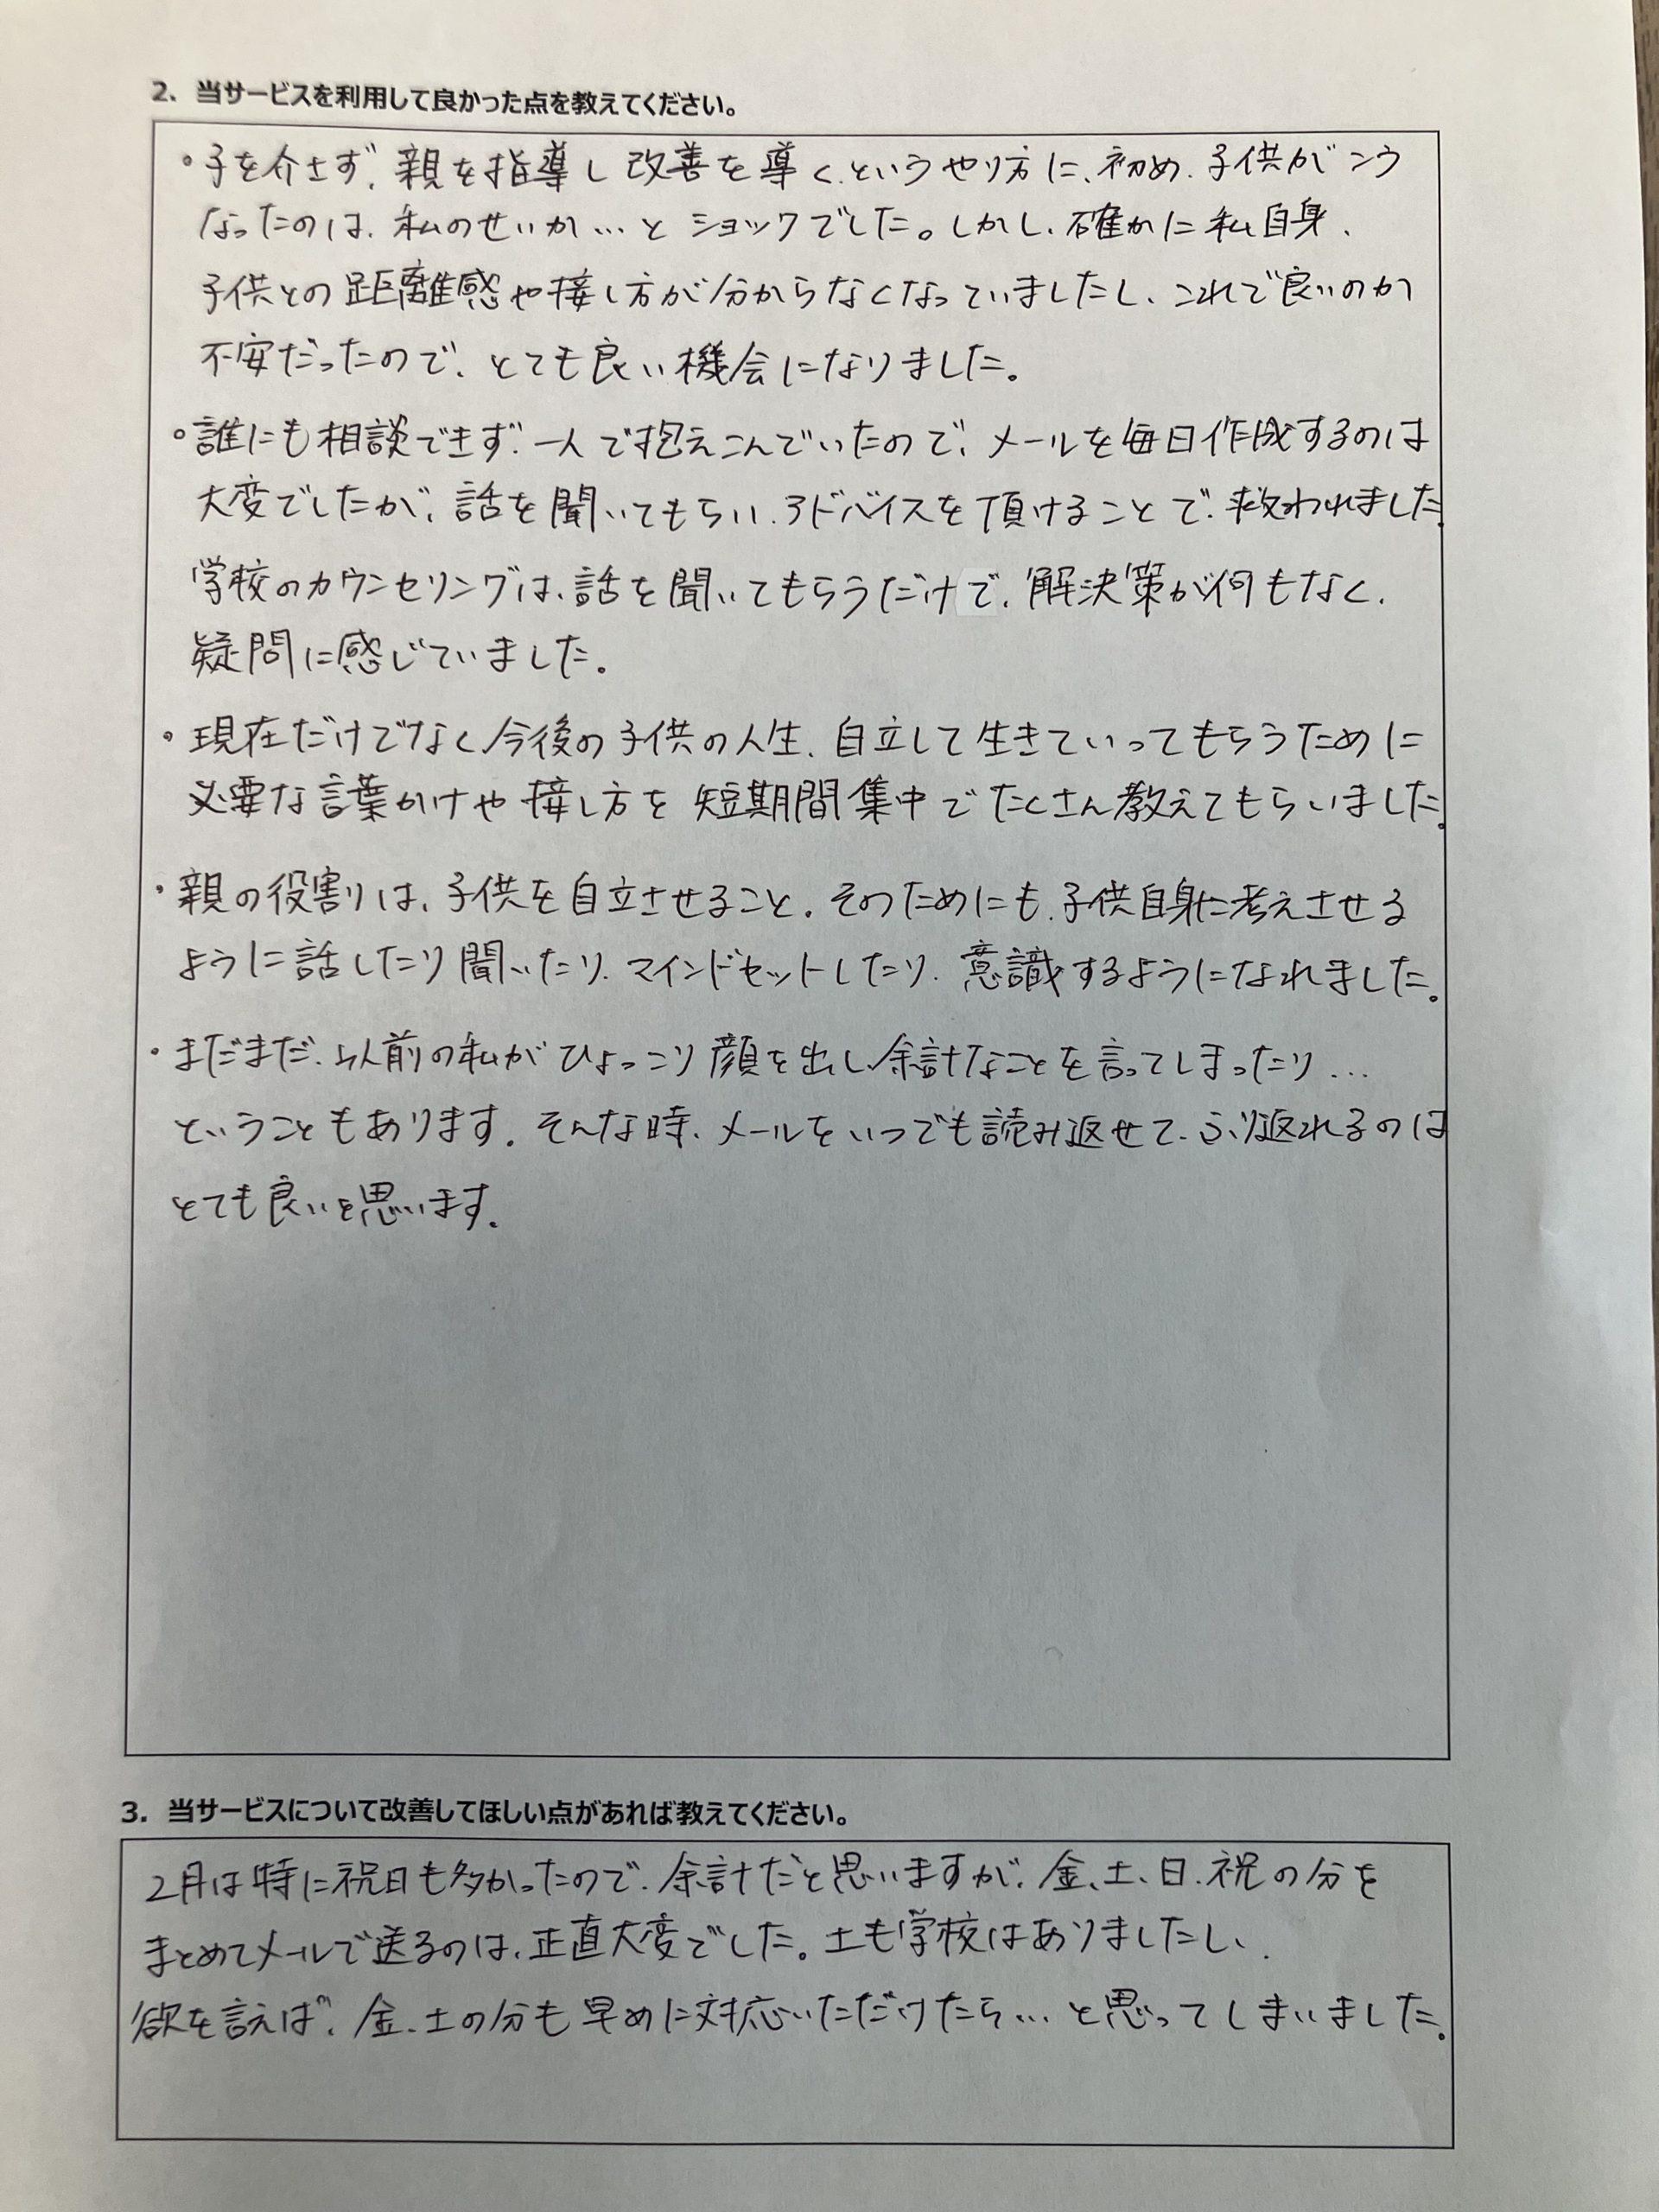 2. 当サービスを利用して良かった点を教えてください。
・子を介さず、親を指導し改善を導く、というやり方に、初め、子供がこう
なったのは、私のせいか…とショックでした。しかし、確かに私自身、
子供との距離感や接し方が分からなくなっていましたし、これで良いのか
不安だったので、とても良い機会になりました。
・誰にも相談できず、一人で抱えこんでいたので、メールを毎日作成するのは
大変でしたが、話を聞いてもらい、アドバイスを頂けることで、救われました。
学校のカウンセリングは、話を聞いてもらうだけで、解決策が何もなく、
疑問に感じていました。
・現在だけでなく今後の子供の人生、自立して生きていってもらうために
必要な言葉かけや接し方を短期間集中でたくさん教えてもらいました。
・親の役割は、子供を自立させること。そのためにも、子供自身に考えさせる
ように話したり聞いたり、マインドセットしたり、意識するようになれました。
・まだまだ、以前の私がひょっこり顔を出し余計なことを言ってしまったり…
ということもあります。そんな時、メールをいつでも読み返せて、ふり返れるのは
とても良いと思います。
3. 当サービスについて改善してほしい点があれば教えてください。
2月は特に祝日も多かったので、余計だと思いますが、金、土、日、祝の分を
まとめてメールで送るのは、正直大変でした。土も学校はありましたし、
欲を言えば、金、土の分も早めに対応いただけたら…と思ってしまいました。